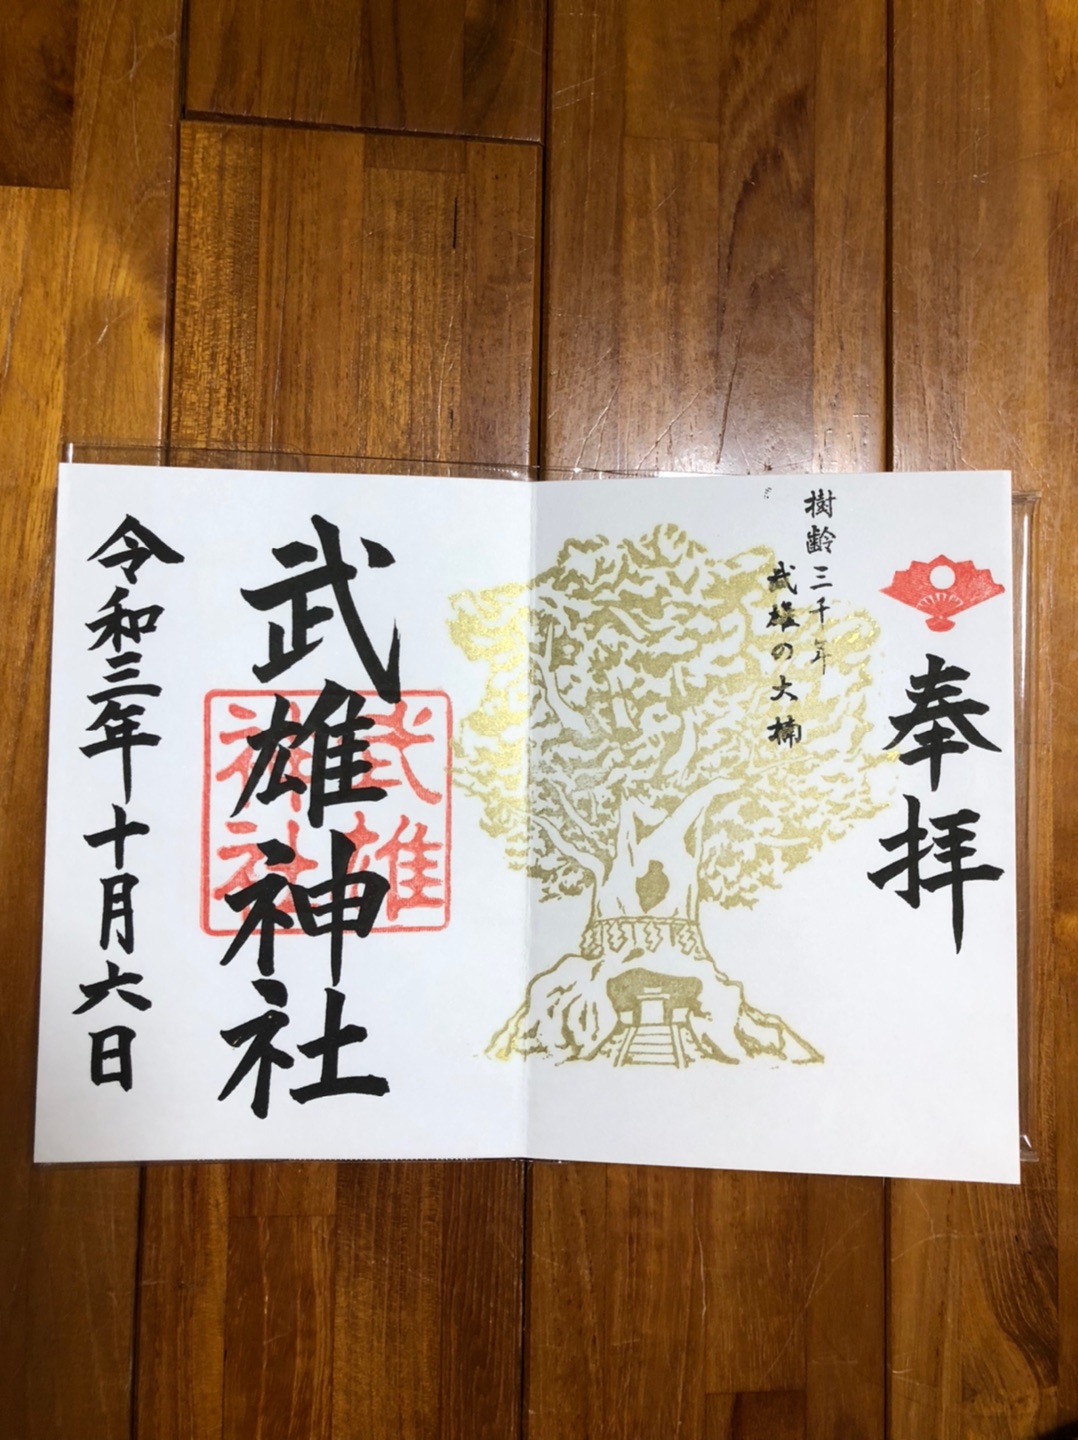 奉拝
樹齢三千年
武雄の大楠
武雄神社
武雄
神社
令和三年十月六日